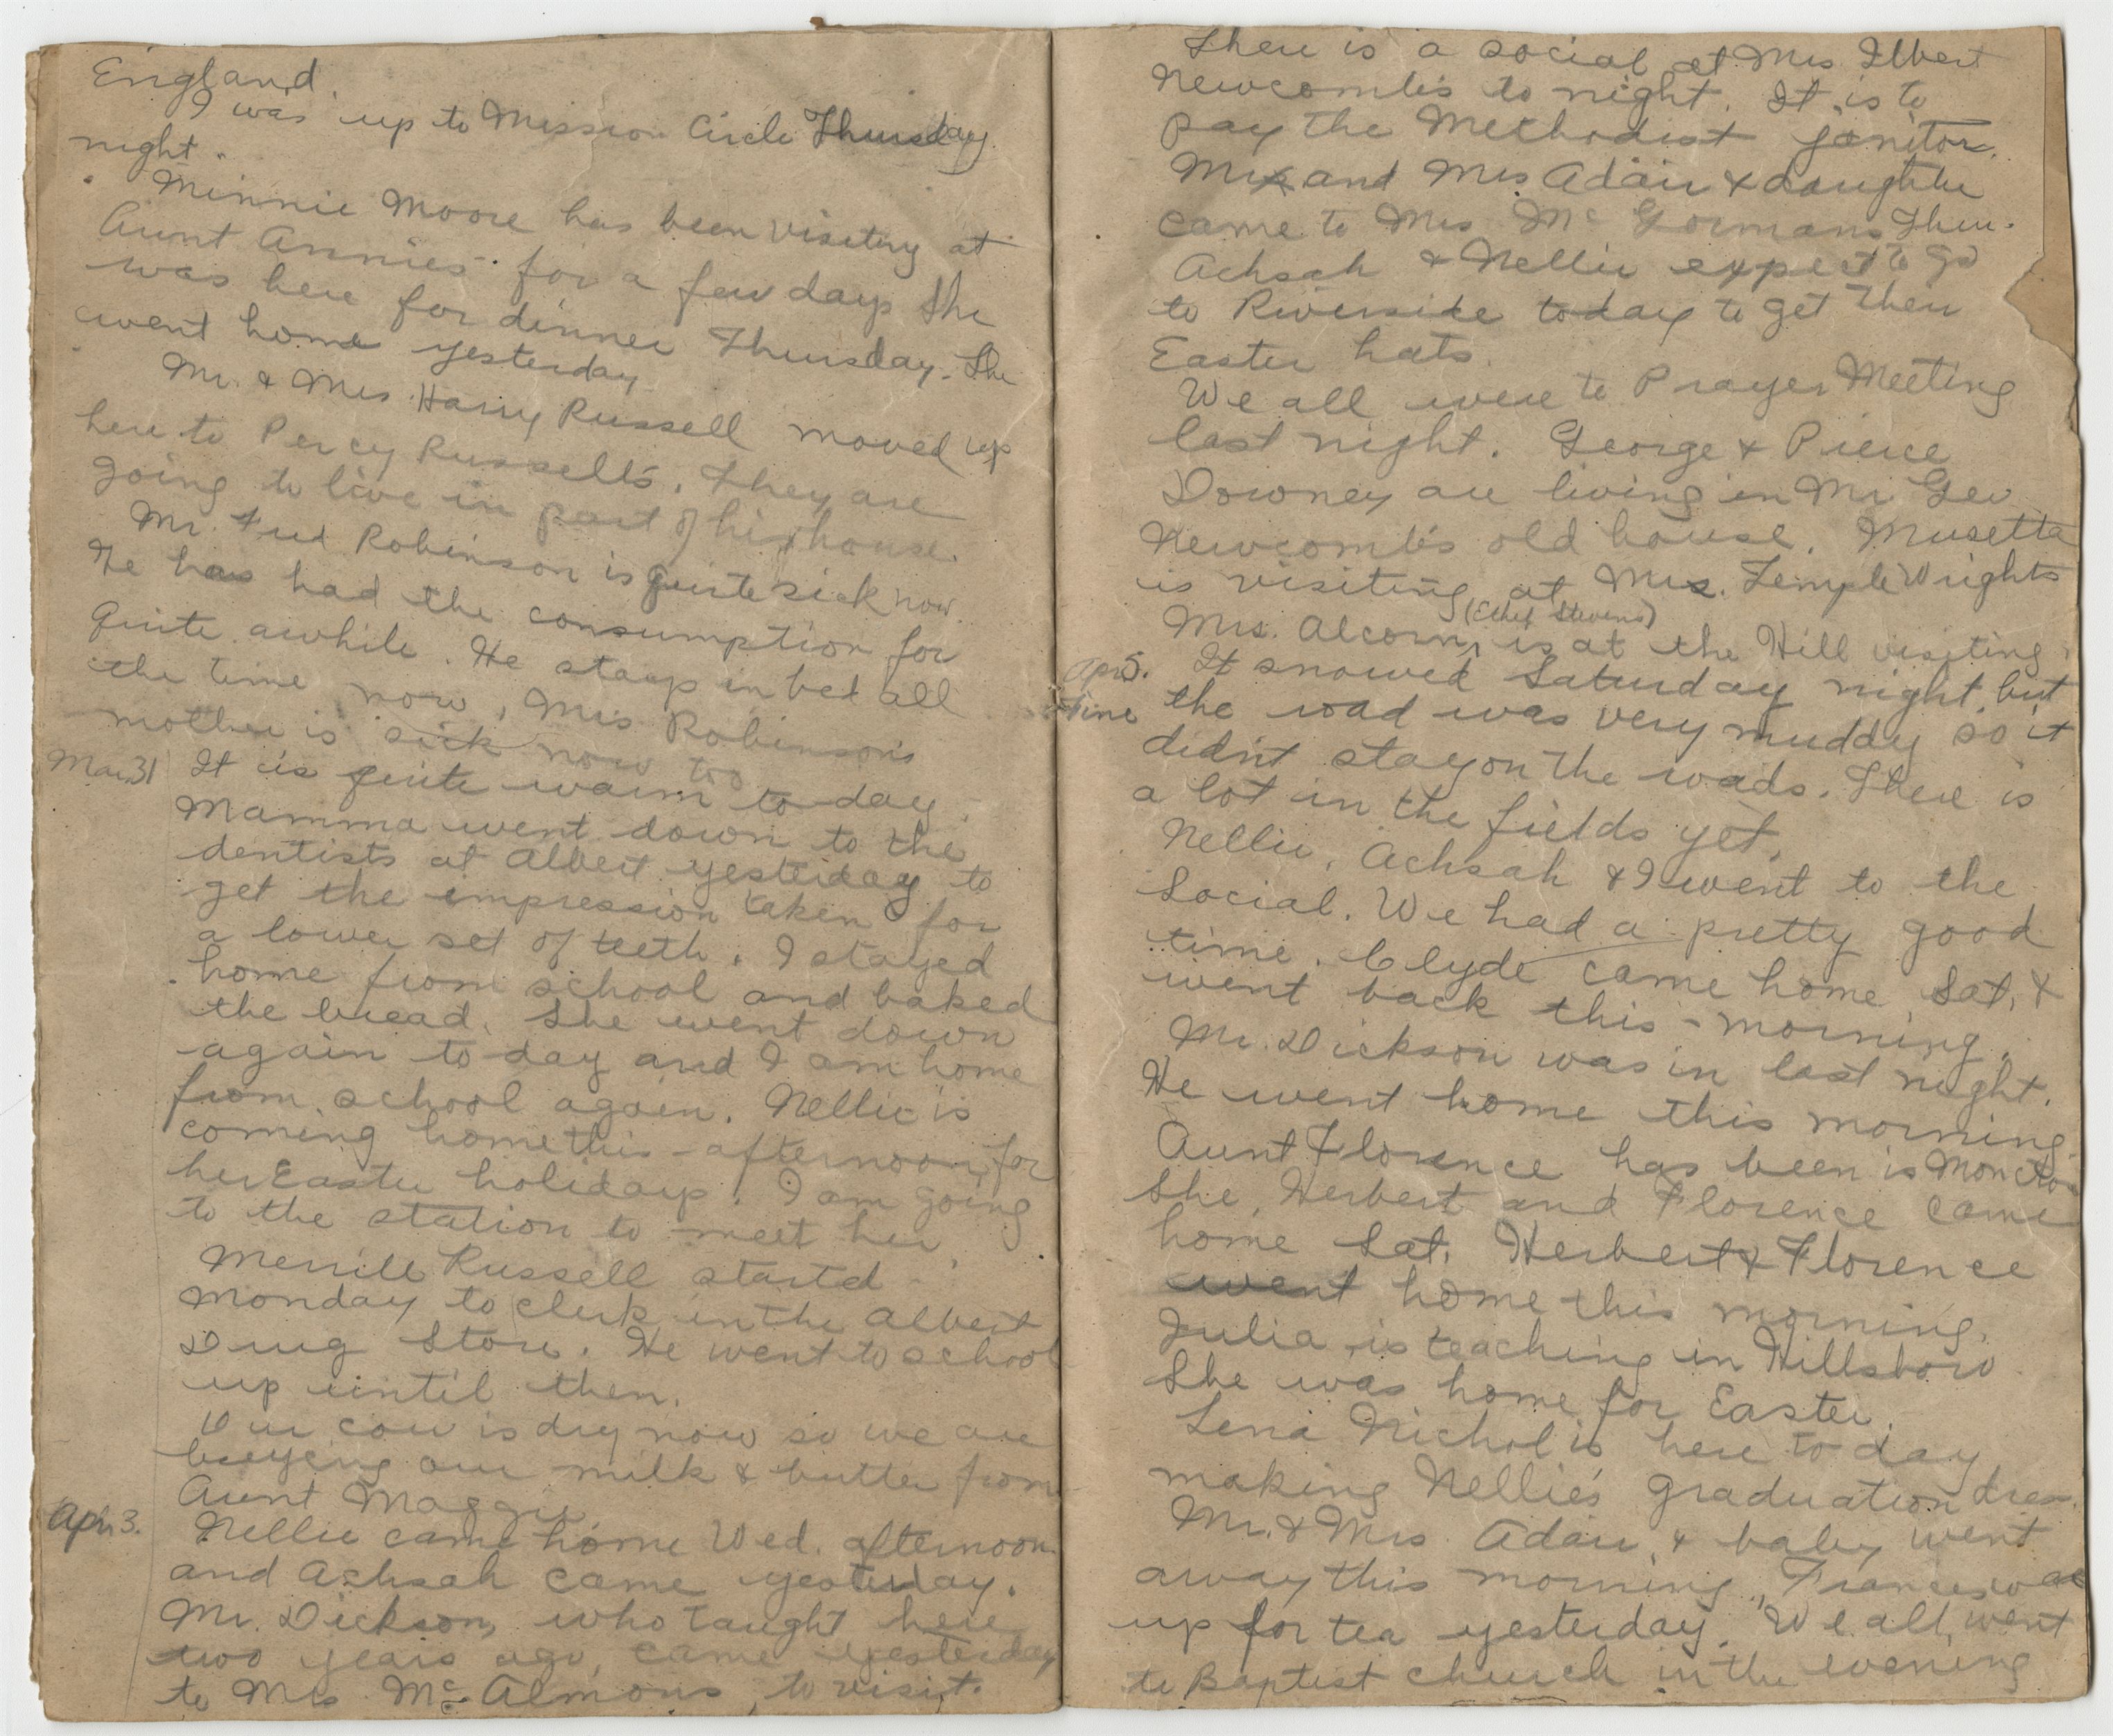 England.
I was up to Mission Circle Thursday
night.
Minnie Moore has been visiting at
Aunt Annies for a few days She
was here for dinner Thursday. She
went home yesterday
Mr. & Mrs. Harry Russell moved up
here to Percy Russell's. They are
going to live in part of his house.
Mr. Fred Robinson is quite sick now.
He has had the consumption for
quite awhile. He stays in bed all
the time now, Mrs Robinson's
mother is sick now too
Mar. 31 It is quite warm to-day.
Mamma went down to the
dentists at Albert yesterday to
get the impression taken for
a lower set of teeth. I stayed
home from school and baked
the bread. She went down
again to-day and I am home
from school again. Nellie is
coming home this-afternoon for
her Easter holidays. I am going
to the station to meet her
Merrile Russell startd
Monday to clerk in the Albert
Drug Store. He went to school
up until then.
Our cow is dry now so we are
buying our milk & butter from
Aunt Maggie
Apr. 3. Nellie came home Wed. afternoon
and Achsah came yesterday.
Mr. Dickson, who taught here
two years ago, came yesterday
to Mrs Mc Almons, to visit.
There is a social at Mrs Ilbert
Newcomb's to night. It is to
pay the Methodist janitor.
Mr and Mrs Adair & daughter
came to Mrs Mc Gormans Thur.
Achsah & Nellie expect to go
to Riverside today to get their
Easter hats.
We all were to Prayer Meeting
last night. George & Pierce
Downey are living in Mr Geo
Newcomb's old house. Musetta
is visiting at Mrs. Temple Wrights
(Ethel Stevens)
Mrs. Alcorn, is at the Hill visiting.
Apr. 5. It snowed Saturday night, but
Fine the road was very muddy so it
didn't stay on the roads. There is
a lot in the fields yet.
Nellie, Achsah & I went to the
Social. We had a pretty good
time. Clyde came home Sat. &
went back this-morning.
Mr. Dickson was in last night.
He went home this morning
Aunt Florence has been is Moncton
She, Herbert and Florence came
home Sat. Herbert & Florence
went home this morning.
Julia is teaching in Hillsboro
She was home for Easter.
Lena Nichol is here to day
making Nellie's graduation dress.
Mr. & Mrs Adair & baby went
away this morning, Frances was
up for tea yesterday. We all went
to Baptist church in the evening